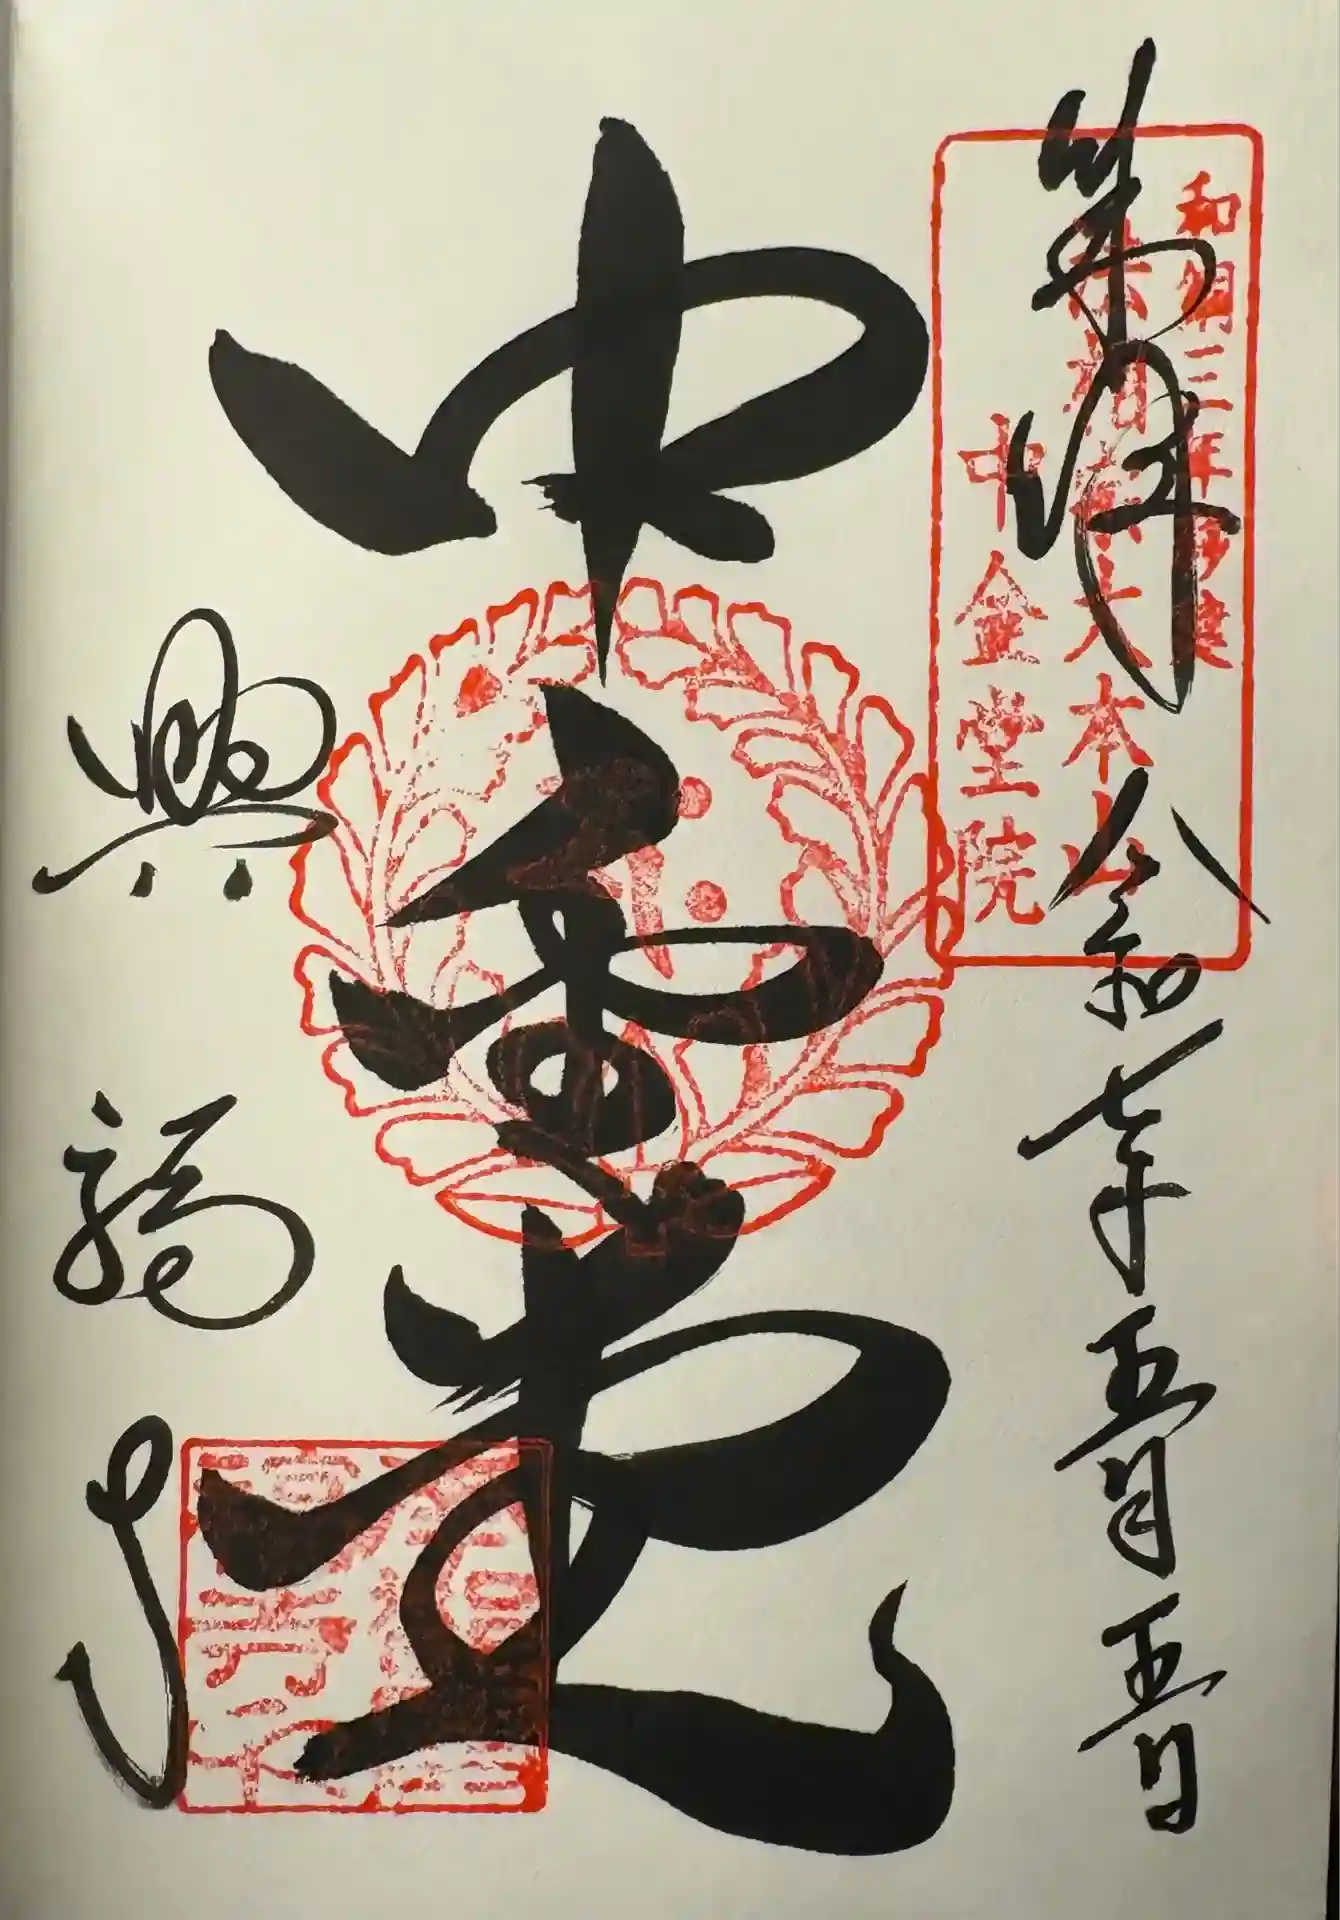 奉拝
令和七年五月五日
和銅三年創建
法相宗大本山
中金堂院
中金堂
興福寺